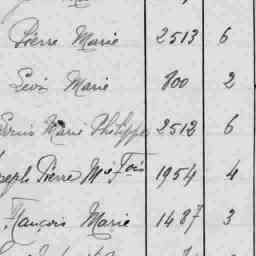 Pierre Marie 2513 6
Marie 800 2
Marie Philippe 2512 6
Pierre Mie Fois 1954 4
François Marie 1487 3